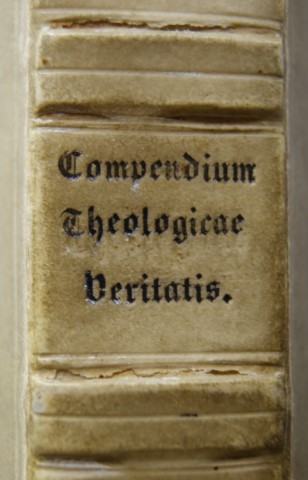 Compendium
Theologicae
Veritatis.